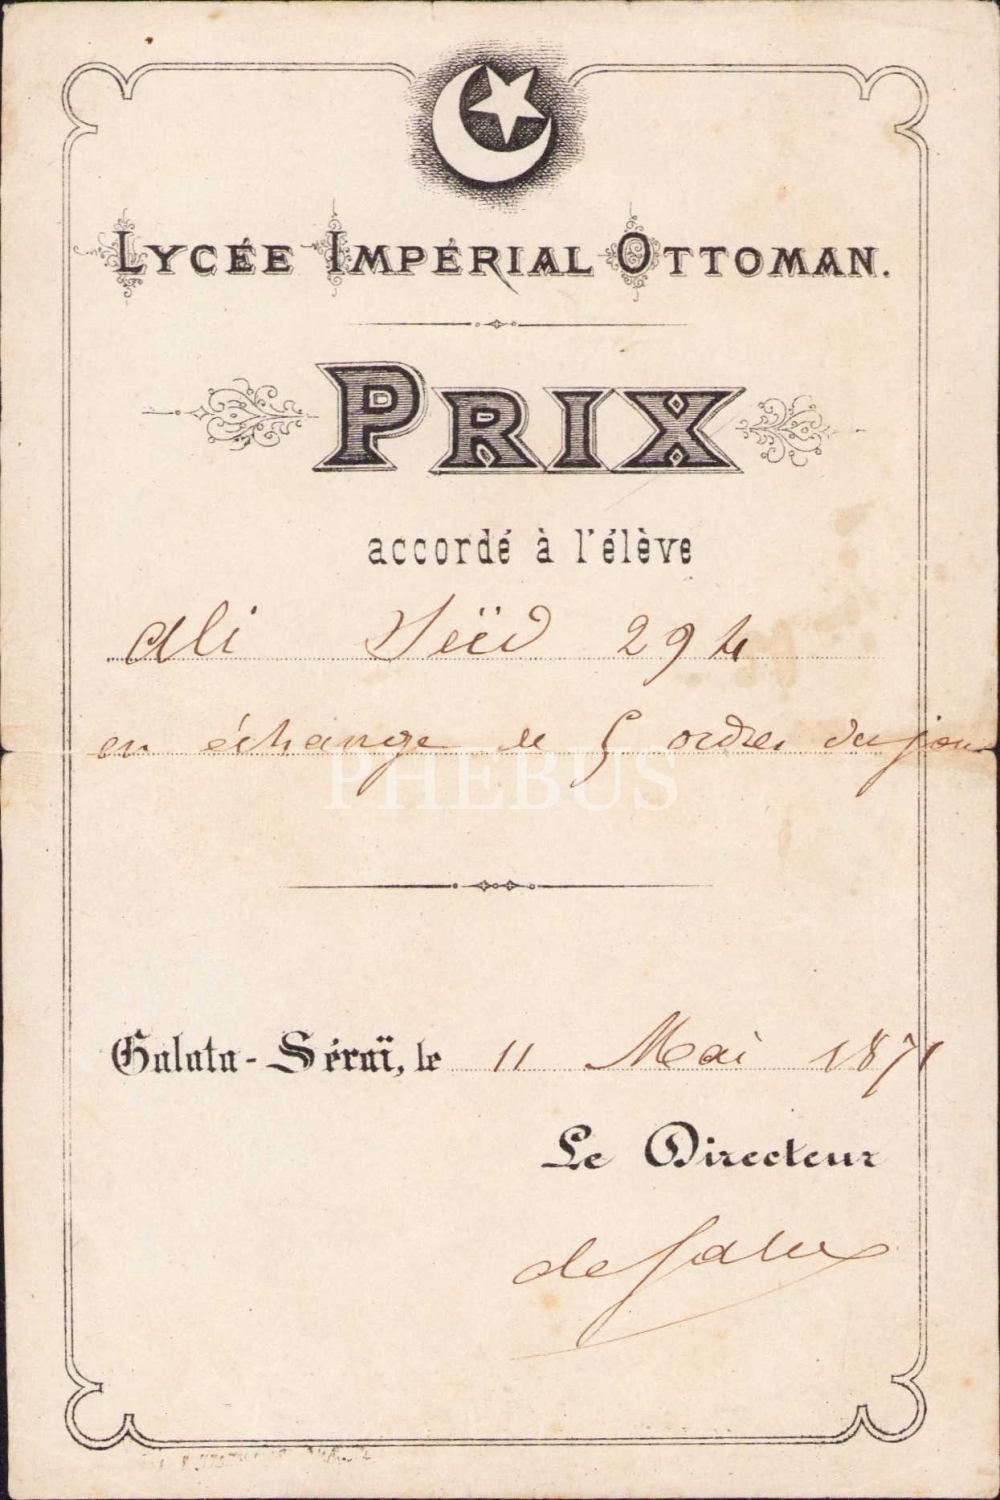 LYCÉE IMPÉRIAL OTTOMAN.
PRIX
accordé à l'élève
Ali Seïd 294
en échange de 5 ordres du jour
PHEBUS
Galata-Séraï, le 11 Mai 1871
Le Directeur
de Salve